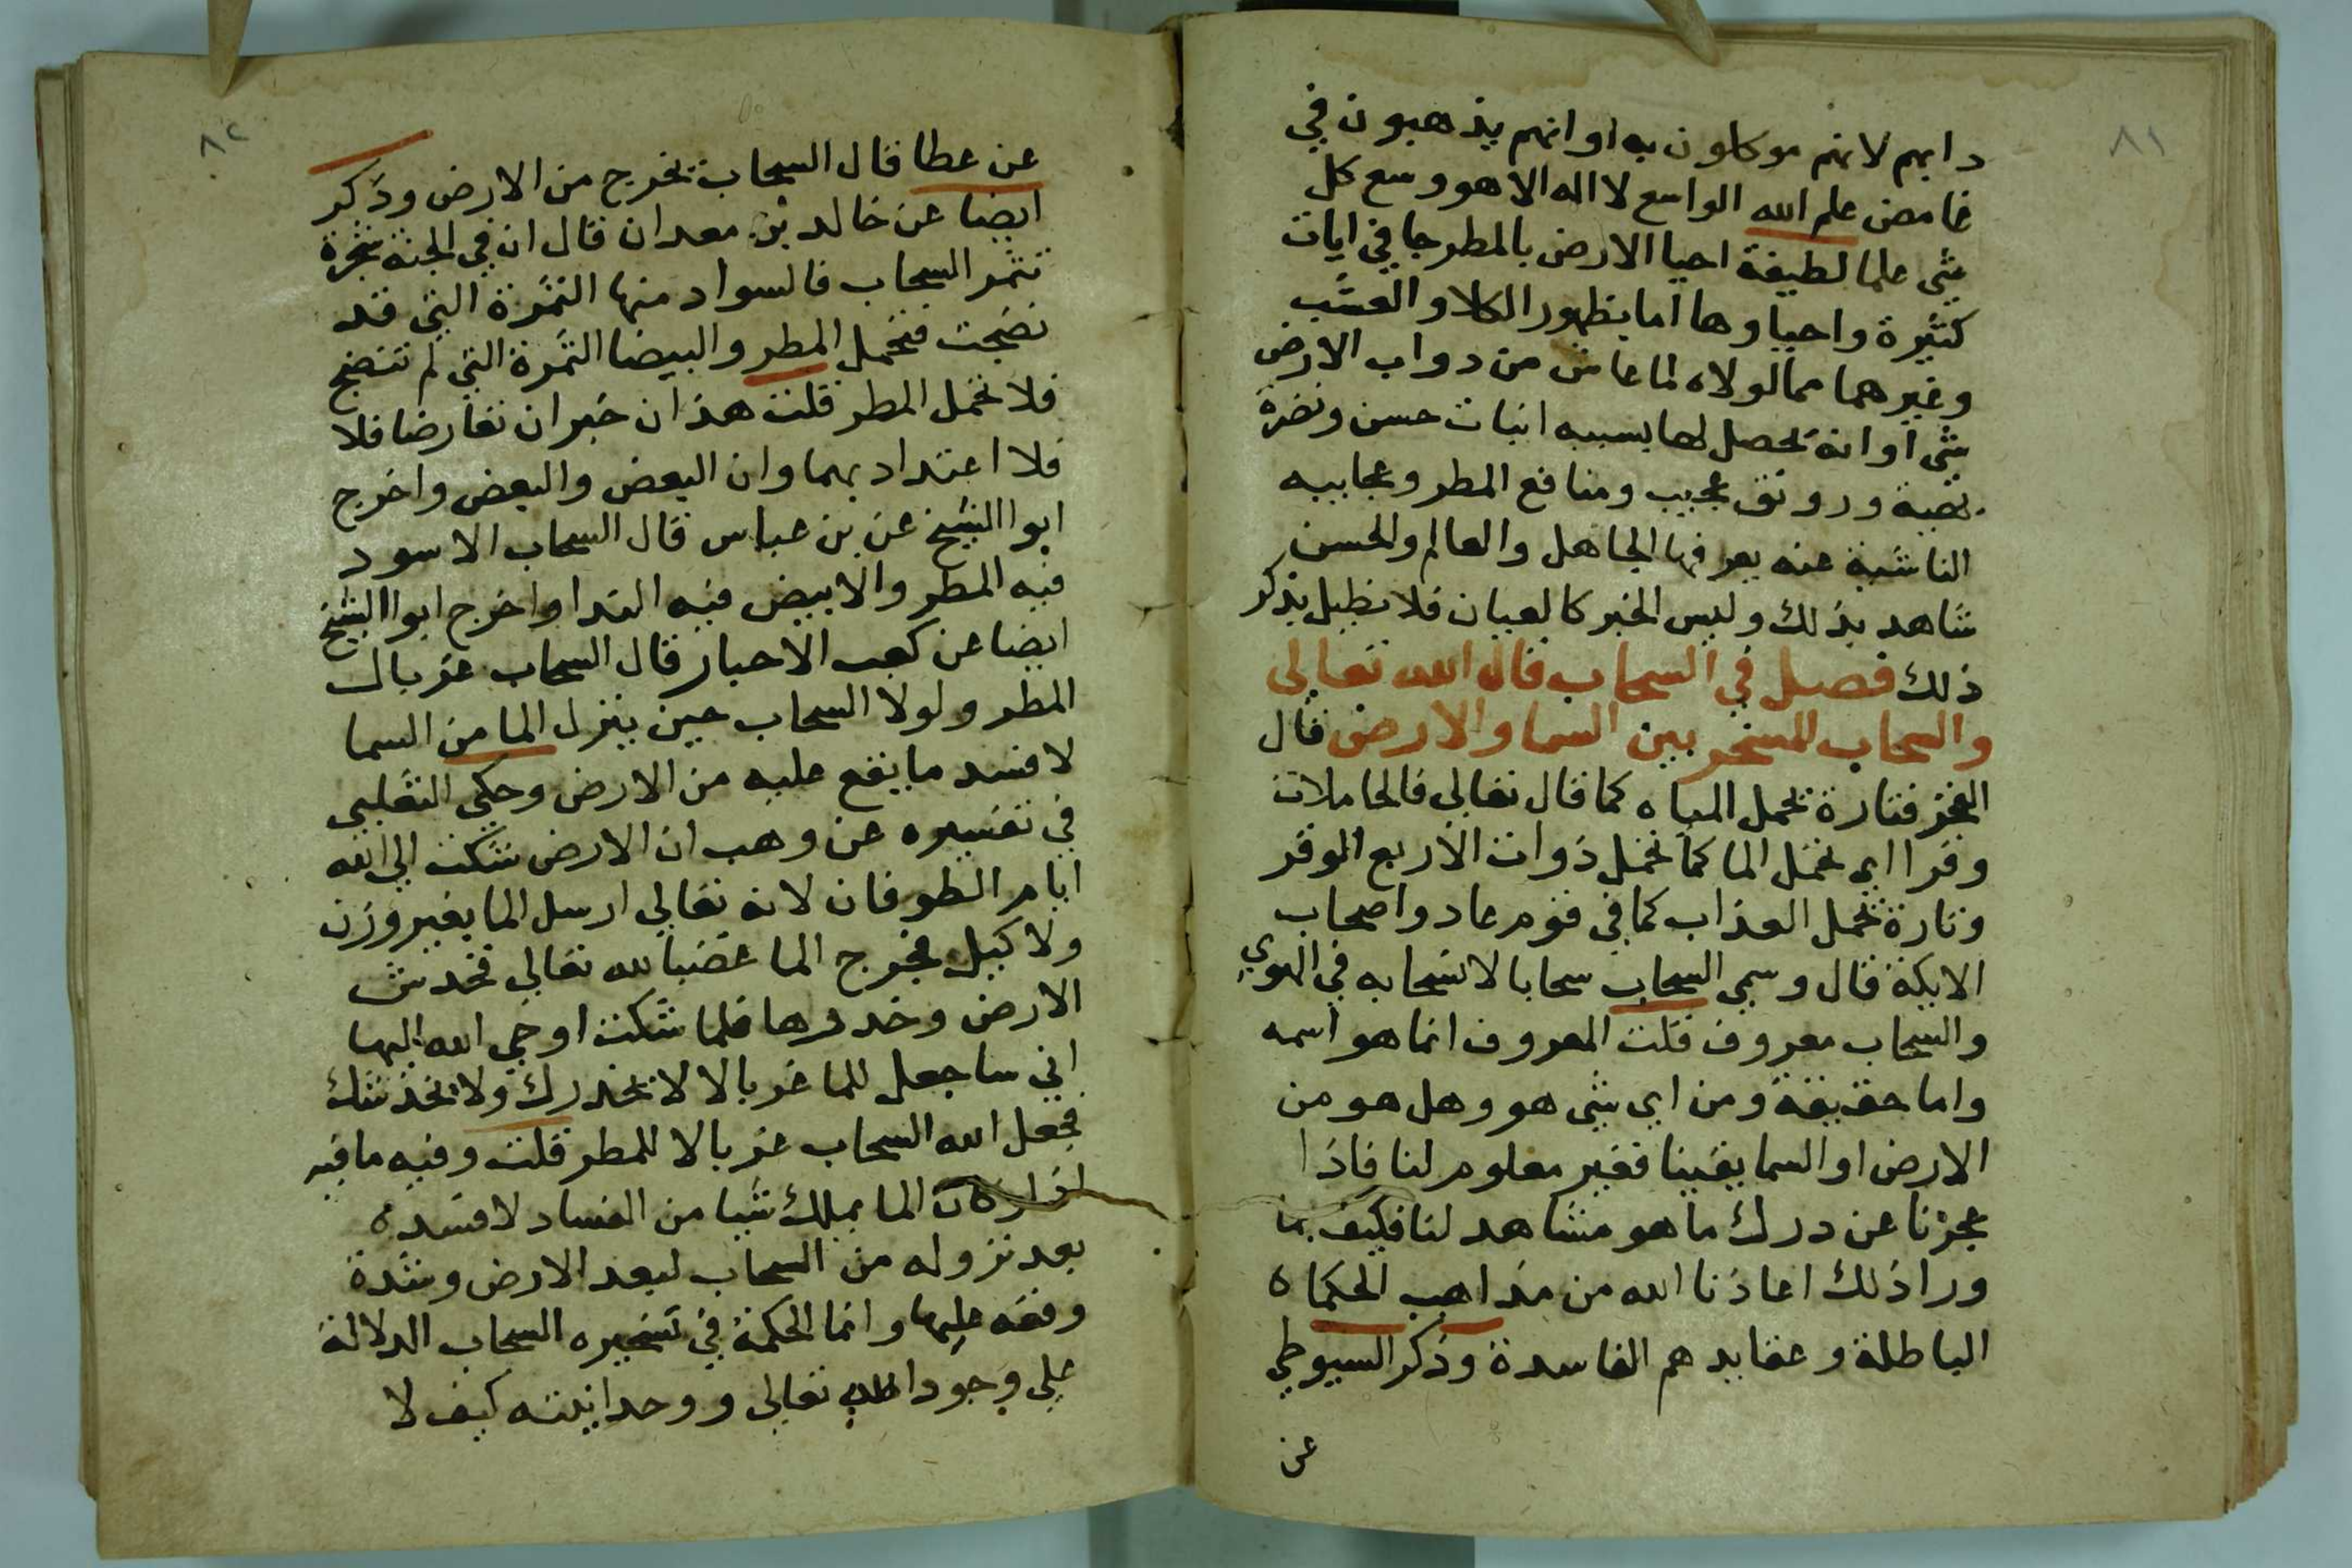 ٨١
دابهم لانهم موكلون به او انهم يذهبون في
غامض علم الله الواسع لا اله الا هو وسع كل
شي علما لطيفة احيا الارض بالمطر جا في ايات
كثيرة واحياوها اما بظهور الكلا والعشب
وغيرهما مما لولاه لما عاش من دواب الارض
شي او انه يحصل لها بسببه انبات حسن ونضرة
بهية ورونق عجيب ومنافع المطر وعجاييه
الناشية عنه يعرفها الجاهل والعالم والحسن
شاهد بذلك وليس الخبر كالعيان فلا نطيل بذكر
ذلك فصل في السحاب قال الله تعالى
والسحاب المسخر بين السما والارض قال
الفخر فتارة تحمل المياه كما قال تعالي فالحاملات
وقرا اي تحمل الما كما تحمل ذوات الاربع الموقر
وتارة تحمل العذاب كما في قوم عاد واصحاب
الايكة قال وسمي السحاب سحابا لانسحابه في الهوي
والسحاب معروف قلت المعروف انما هو اسمه
واما حقيقة ومن اي شي هو وهل هو من
الارض او السما يقينا فغير معلوم لنا فاذا
عجزنا عن درك ما هو مشاهد لنا فكيف بما
ورا ذلك اعاذنا الله من مذاهب الحكما ه
الباطلة وعقايدهم الفاسدة وذكر السيوطي
عن
٨٢
عن عطا قال السحاب تخرج من الارض وذكر
ايضا عن خالد بن معدان قال ان في الجنة شجرة
تثمر السحاب فالسواد منها الثمرة التي قد
نضجت فتحمل المطر والبيضا الثمرة التي لم تنضج
فلا تحمل المطر قلت هذان خبران تعارضا فلا
فلا اعتداد بهما وان البعض والبعض واخرج
ابوا الشيخ عن بن عباس قال السحاب الاسود
فيه المطر والابيض فيه الندا واخرج ابوا الشيخ
ايضا عن كعب الاحبار قال السحاب غربال
المطر ولولا السحاب حين ينزل الما من السما
لافسد ما يقع عليه من الارض وحكي الثعلبي
في تفسيره عن وهب ان الارض شكت الي الله
ايام الطوفان لانه تعالي ارسل الما بغير وزن
ولا كيل فخرج الما غضبا لله تعالي فخدش
الارض وخدرها فلما شكت اوحي الله اليها
اني ساجعل للما غربالا لا يخدرك ولا يخدشك
فجعل الله السحاب غربالا للمطر قلت وفيه ما فيه
اذ لو كان الما يملك شيا من الفساد لافسده
بعد نزوله من السحاب لبعد الارض وشدة
وقعه عليها وانما الحكمة في تسخيره السحاب الدلالة
علي وجود الله تعالي ووحدانيته كيف لا